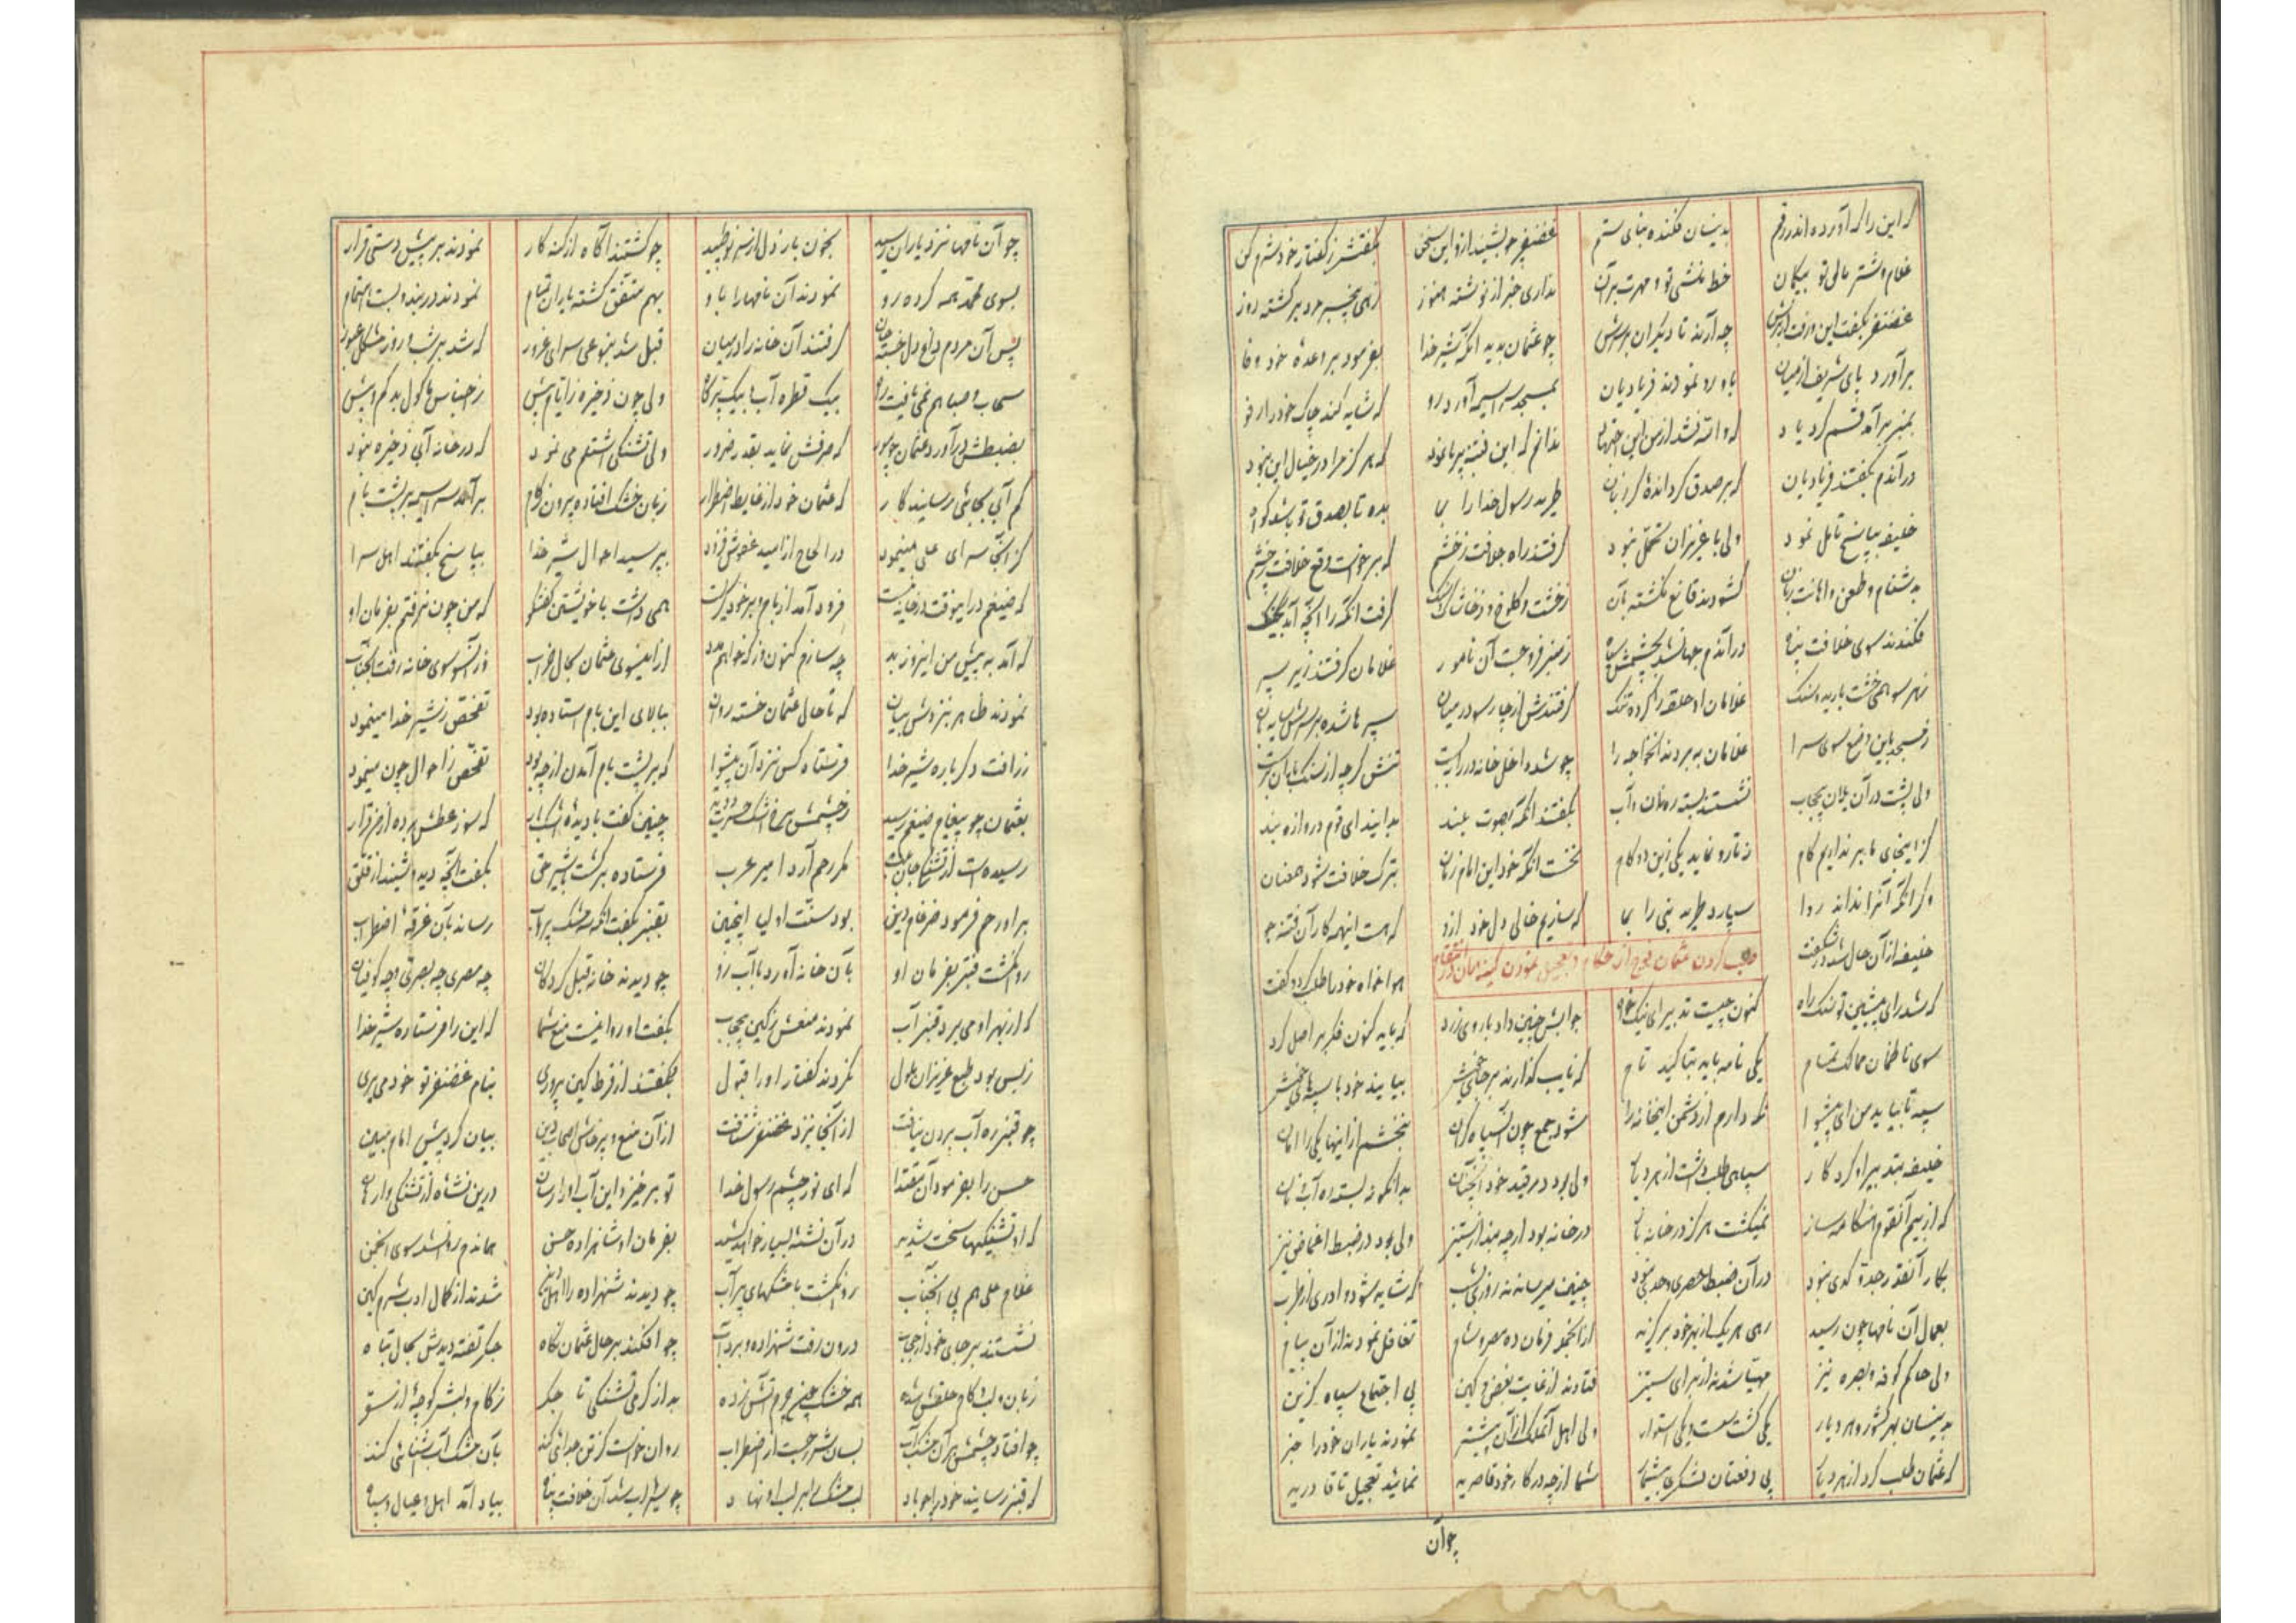 که این را که آورده اندر رقم بدینسان فکنده بنای ستم غضنفر چو بشنید ازو این سخن بگفتش ز گفتار خود شرم کن
غلام و شتر مال تو بیگمان خط منشی تو و مهرت بر آن نداری خبر از نوشته هنوز زهی بیخبر مرد برگشته روز
غضنفر بگفت این و رفت از برش چه آرند تا دیگران بر سرش چو عثمان بدید آنکه شیر خدا بفرمود بر وعده خود وفا
برآورد پای شریف از میان باو رو نمودند فریادیان بمسجد سراسیمه آورد رو که شاید کند چاک خود را رفو
بمنبر برآمد قسم کرد یاد که والله نشد از من این اجتهاد ندانم که این فتنه برپا نمود که هرگز مرا در خیال این نبود
در آندم بگفتند فریادیان که بر صدق گردانده‌ گر زبان طرید رسول خدا را بما بده تا بصدق تو باشد گواه
خلیفه بپاسخ تامل نمود ولی با عزیزان تحمل نبود گرفتند راه جلافت ز خشم که برخواست وقع خلافت ز چشم
بدشنام و طعن و اهانت زبان گشودند قانع نگشته بآن ز خشت و کلوخ و ز خاشاک و سنگ گرفت آنکه را آنچه آمد بچنگ
فکندند سوی خلافت پناه در آندم جهان شد بچشمش سیاه ز منبر فرو جست آن نامور غلامان گرفتند زیر سپر
ز هر سو همی خشت بارید و سنگ غلامان او حلقه را کرده تنگ گرفتندش از چار سو در میان سپرها شده بر سرش سایه‌بان
ز مسجد باین وضع سوی سرا غلامان ببردند آنخواجه را چو شد داخل خانه در را ببست تنش گرچه از سنگ باران بخست
ولی پشت در آن یلان بیحجاب نشستند بسته ره نان و آب بگفتند آنگه بصوت بلند بدانید ای قوم دروازه بند
کز اینجای ما برنداریم گام ز ما رو نماید یکی زین دو کام نخست آنکه خود این امام زمان بترک خلافت شود همعنان
وگر آنکه آنرا نداند روا سپارد طرید نبی را بما که سازیم خالی دل خود ازو که هست اینهمه کار آن فتنه جو
طلب کردن عثمان فوج از حکام و تعجیل نمودن
خلیفه از آن حال شد در شگفت هواخواه خود را طلب کرد و گفت
که شد رای پیشین تو سنگ راه کنون چیست تدبیر ای نیک خواه جوابش چنین داد با روی زرد که باید کنون فکر بر اصل کرد
سوی ناظمان ممالک تمام یکی نامه باید بتاکید تام که نایب گذارند بر جای خویش بیایند خود با سپه‌های خویش
سپه تا نیاید من ای پیشوا نگه دارم از دشمن اینخانه را شود جمع چون آن سپاه گران نبخشم از اینها یکی را امان
خلیفه بتدبیر او کرد کار سپاهی طلب داشت از هر دیار ولی بود در قید خود آنچنان بدانگونه بسته ره آب و نان
که از بیم آنقوم هنگامه ساز نمیگشت هرگز در خانه باز در خانه بود ارچه بند از ستیز ولی بود در ضبط اغماض نیز
بکار آنقدر جد و کدی نبود در آن ضبط حصری و حدی نبود چنین میرساندند روز و شب که شاید شود دادری از طرب
بعمال آن نامها چون رسید رهی هر یک از بهر خود برگزید از آنجمله فرمان ده مصر و شام تغافل نمودند از آن پیام
ولی حاکم کوفه و بصره نیز مهیا شدند از برای ستیز فتادند از غایت بغض و کین پی اجتماع سپاه گزین
بدینسان بهر کشور و هر دیار یکی گشت سست و یکی استوار ولی اهل آنملک از آن پیشتر نمودند یاران خود را خبر
که عثمان طلب کرد از هر دیار پی دفعتان لشکر بیشمار شما از چه در کار خود قاصرید نمائید تعجیل تا قادرید
چو آن
چو آن نامها نزد یاران رسید بخون بار دل از سر نو طپید چو گشتند آگاه از کنه کار نمودند بر پیش دستی قرار
بسوی محمد همه کرده رو نمودند آن نامها را باو بهم متفق گشته یاران تمام نمودند در بند و بست اهتمام
پس آن مردم داغ دل خسته جان گرفتند آن خانه را در میان قبل شد بنوعی سرای غرور که شد بر شب و روز مشکل عبور
سحاب و صبا هم نمی یافت راه بیک قطره آب یا بیک پر کاه ولی چون ذخیره ز ایام پیش ز اجناس ماکول بد کم و بیش
بضبطش درآورد عثمان که صرفش نماید بقدر ضرور ولی تشنگی اشتلم می نمود که در خانه آبی ذخیره نبود
کم آبی بجائی رسانید کار که عثمان خود از غایط اضطرار زبان خشک افتاده بیرون ز کام برآمد سراسیمه بر پشت بام
کز آنجا سرای علی مینمود در الحاح از امید عفوش فزود بپرسید احوال شیر خدا بپاسخ بگفتند اهل سرا
که ضیغم در اینوقت در خانه نیست فرود آمد از بام و بر خود گریست همی داشت با خویشتن گفتگو که من چون نرفتم بفرمان او
که آمد به پیش من این روز بد چه سازم کنون وز که خواهم مدد ازینسوی عثمان بحال خراب وز آنسو سوی خانه رفت آنجناب
نمودند ظاهر بنزدش بیان که تا حال عثمان خسته روان ببالای این بام استاده بود تفحص ز شیر خدا مینمود
ز رافت دگر باره شیر خدا فرستاد کس نزد آن پیشوا که بر پشت بام آمدن از چه بود تفحص ز احوال چون مینمود
بعثمان چو پیغام ضیغم رسید ز چشمش سرشک حسرت دوید چنین گفت با دیده اشکبار که سوز عطش برده از من قرار
رسیده است از تشنگی جان مگر رحم آرد امیر عرب فرستاده برگشت پیش شیر حق بگفت آنچه دید و شنید از قلق
برو رحم فرمود ضرغام دین بود سنت اولیا اینچنین بقنبر بگفت آنکه مشک پر آب رساند بآن غرقه اضطراب
روان گشت قنبر بفرمان او بآن خانه آورد با آب رو چو دیدند خانه قبل کردگان چه مصری چه بصری و چه کوفیان
که از بهر او می برد قنبر آب نمودند منعش ز کین بیحجاب بگفت او روا نیست منع شما که این را فرستاده شیر خدا
ز بس بود طبع عزیزان ملول نکردند گفتار او را قبول بگفتند از فرط کین پروری بنام غضنفر تو خود می بری
چو قنبر ره آب بردن نیافت از آنجا بنزد غضنفر شتافت از آن منع و پرخاش اصحاب کین بیان کرد پیش امام مبین
حسن را بفرمود آن مقتدا که ای نور چشم رسول خدا تو برخیز و این آب او را رسان درین نشاه از تشنگی وارهان
که او تشنگیها سخت شدید در آن نشئه بسیار خواهد کشید بفرمان او شاهزاده حسن هماندم روان شد سوی انجمن
غلام علی هم پی آنجناب روان گشت با مشکهای پر آب چو دیدند شهزاده را اهل کین شدند از کمال ادب شرمگین
نشستند بر جای خود از حجاب درون رفت شهزاده و برد آب چو افکند بر حال عثمان نگاه جگر تفته دیدش بحال تباه
زبان و لب و کام و حلقش شده همه خشک چون چرم آتش زده بد از گرمی تشنگی تا جگر
چو افتاد چشمش بر آن مشک آب بسان شرر جست از اضطراب روان خواست کز تن جدائی کند بآن مشک آب آشنائی کند
که قنبر رساند خود را چو باد لب مشک را بر لب او نهاد چو سیراب شد آن خلافت پناه بیاد آمد اهل و عیال و سپاه